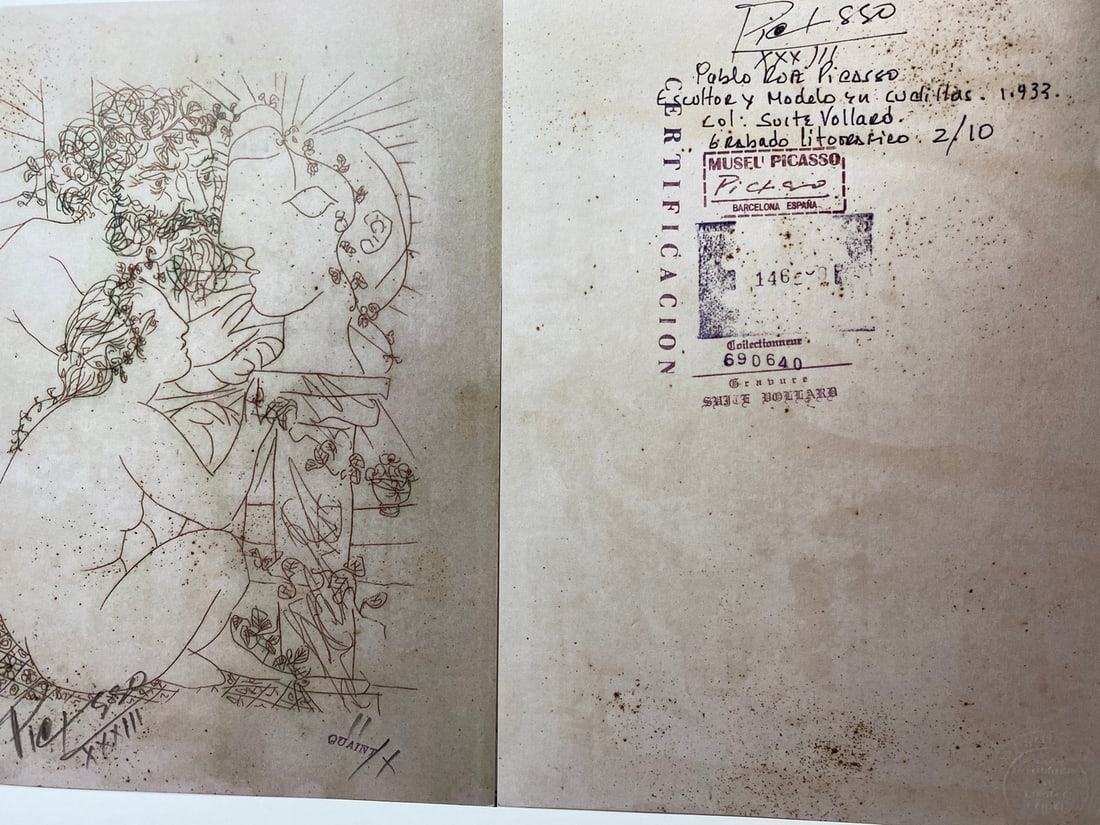 Picasso
XXXIII
QUAINT
II/X
Picasso
XXXIII
Pablo Ruiz Picasso
Escultor y Modelo en cudillas. 1.933.
Col: Suite Vollard.
Grabado litografico 2/10
CERTIFICACIÓN
MUSEU PICASSO
Picasso
BARCELONA ESPAÑA
Collectionneur
690640
Gravure
SUITE VOLLARD